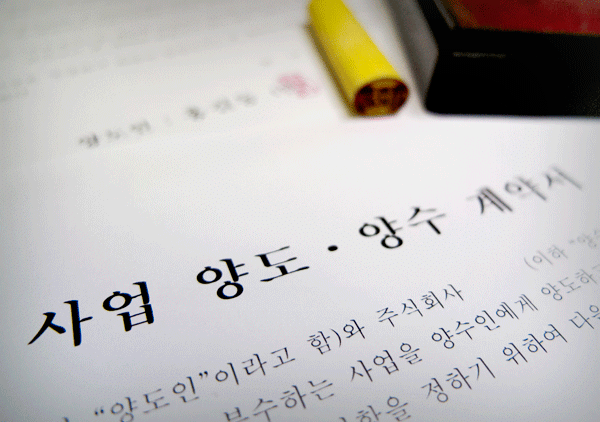 양도인 : 홍길동
사업 양도 · 양수 계약서
“양도인”이라고 함)와 주식회사 (이하 “양수
부수하는 사업을 양수인에게 양도하고
을 정하기 위하여 다음